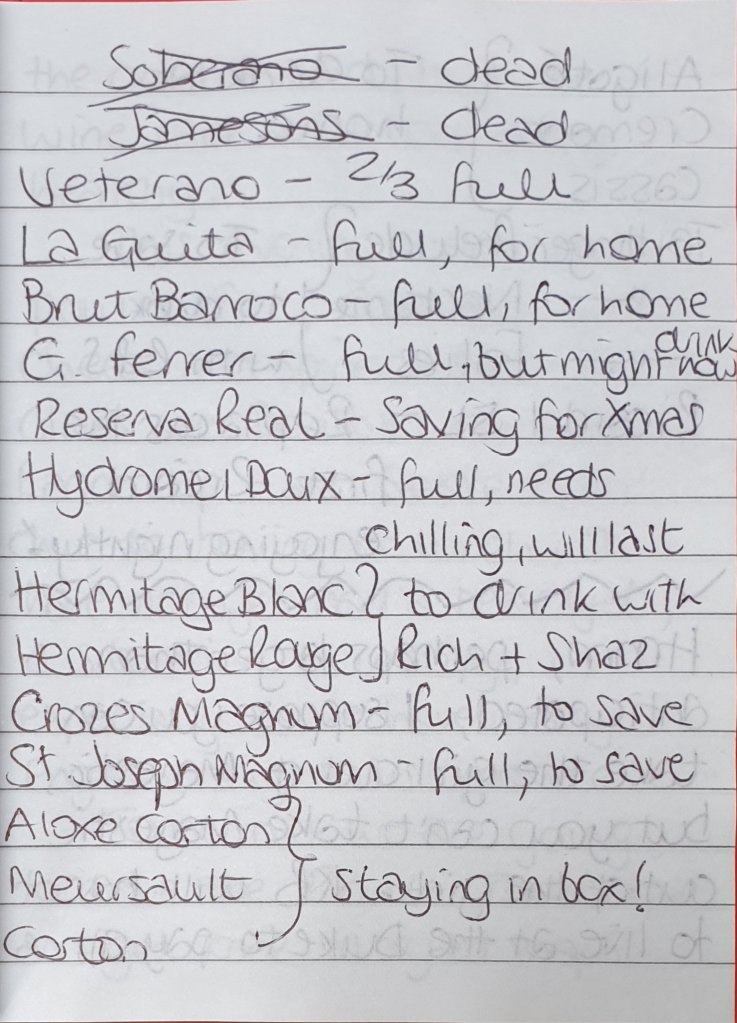 Soberano - dead
Jamesons - dead
Veterano - 2/3 full
La Guita - full, for home
Brut Barroco - full, for home
G. ferrer - full, but might drink now
Reserva Real - Saving for Xmas
Hydromel Doux - full, needs
chilling, will last
Hermitage Blanc } to drink with
Hermitage Rouge } Rich + Shaz
Crozes Magnum - full, to save
St. Joseph Magnum - full, to save
Aloxe Corton }
Meursault } staying in box!
Corton }